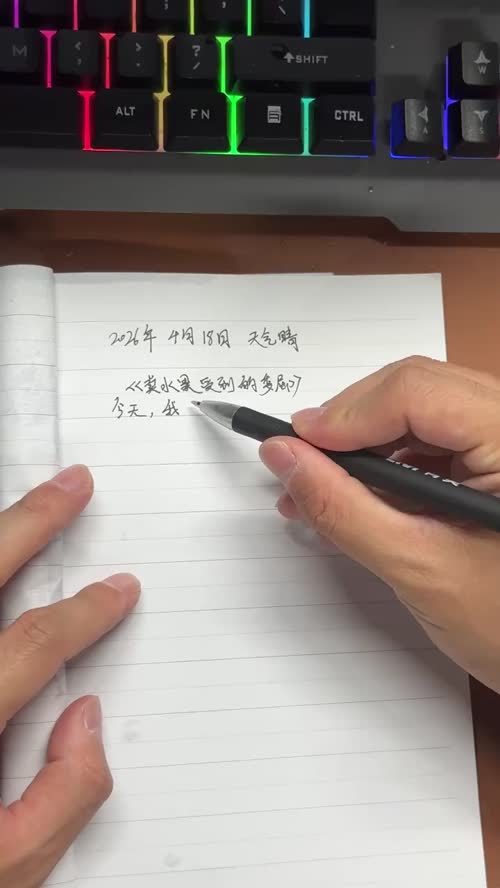 M
< ,
> .
? /
SHIFT
W
ALT
FN
CTRL
A
S
2026年 4月18日 天气晴
《卖水果受到的委屈》
今天，我